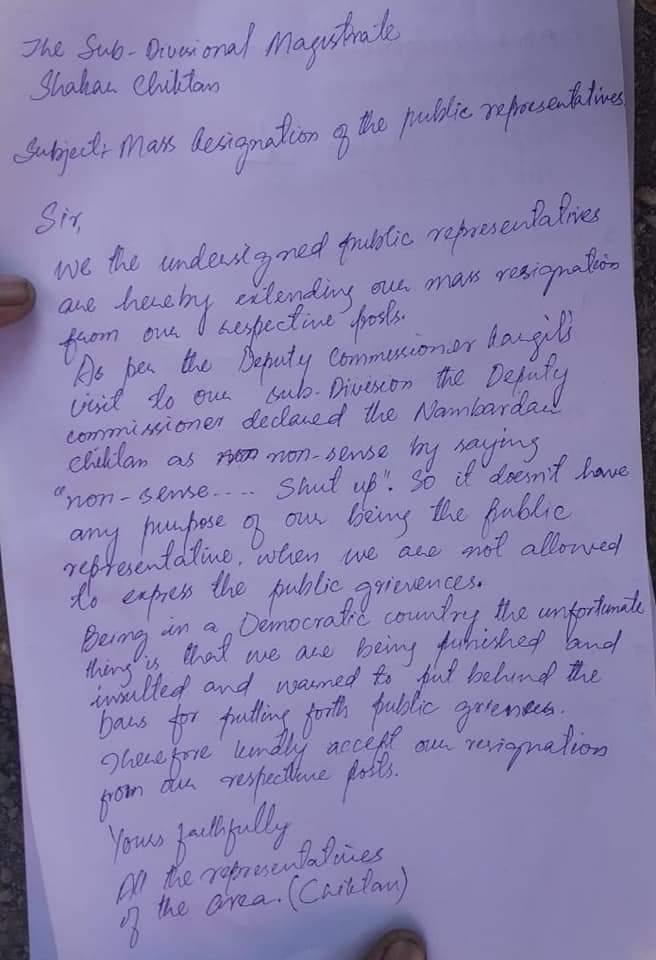 The Sub-Divisional Magistrate
Shakar Chiktan
Subject: Mass Resignation of the public representatives.
Sir,
We the undersigned public representatives
are hereby extending our mass resignation
from our respective posts.
As per the Deputy Commissioner Kargil's
visit to our sub-Division the Deputy
commissioner declared the Nambardar
Chiktan as non-sense by saying
"non-sense.... Shut up". So it doesn't have
any purpose of our being the public
representative, when we are not allowed
to express the public grievences.
Being in a Democratic country the unfortunate
thing is that we are being punished and
insulted and warned to put behind the
bars for putting forth public grievences.
Therefore kindly accept our resignation
from our respective posts.
Yours faithfully
All the representatives
of the area. (Chiktan)